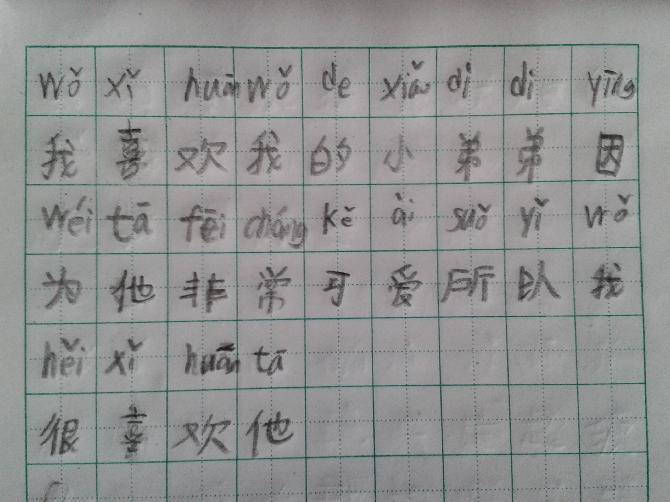 wǒ xǐ huān wǒ de xiǎo dì di yīng
我喜欢我的小弟弟因
wéi tā fēi cháng kě ài suǒ yǐ wǒ
为他非常可爱所以我
hěi xǐ huān tā
很喜欢他